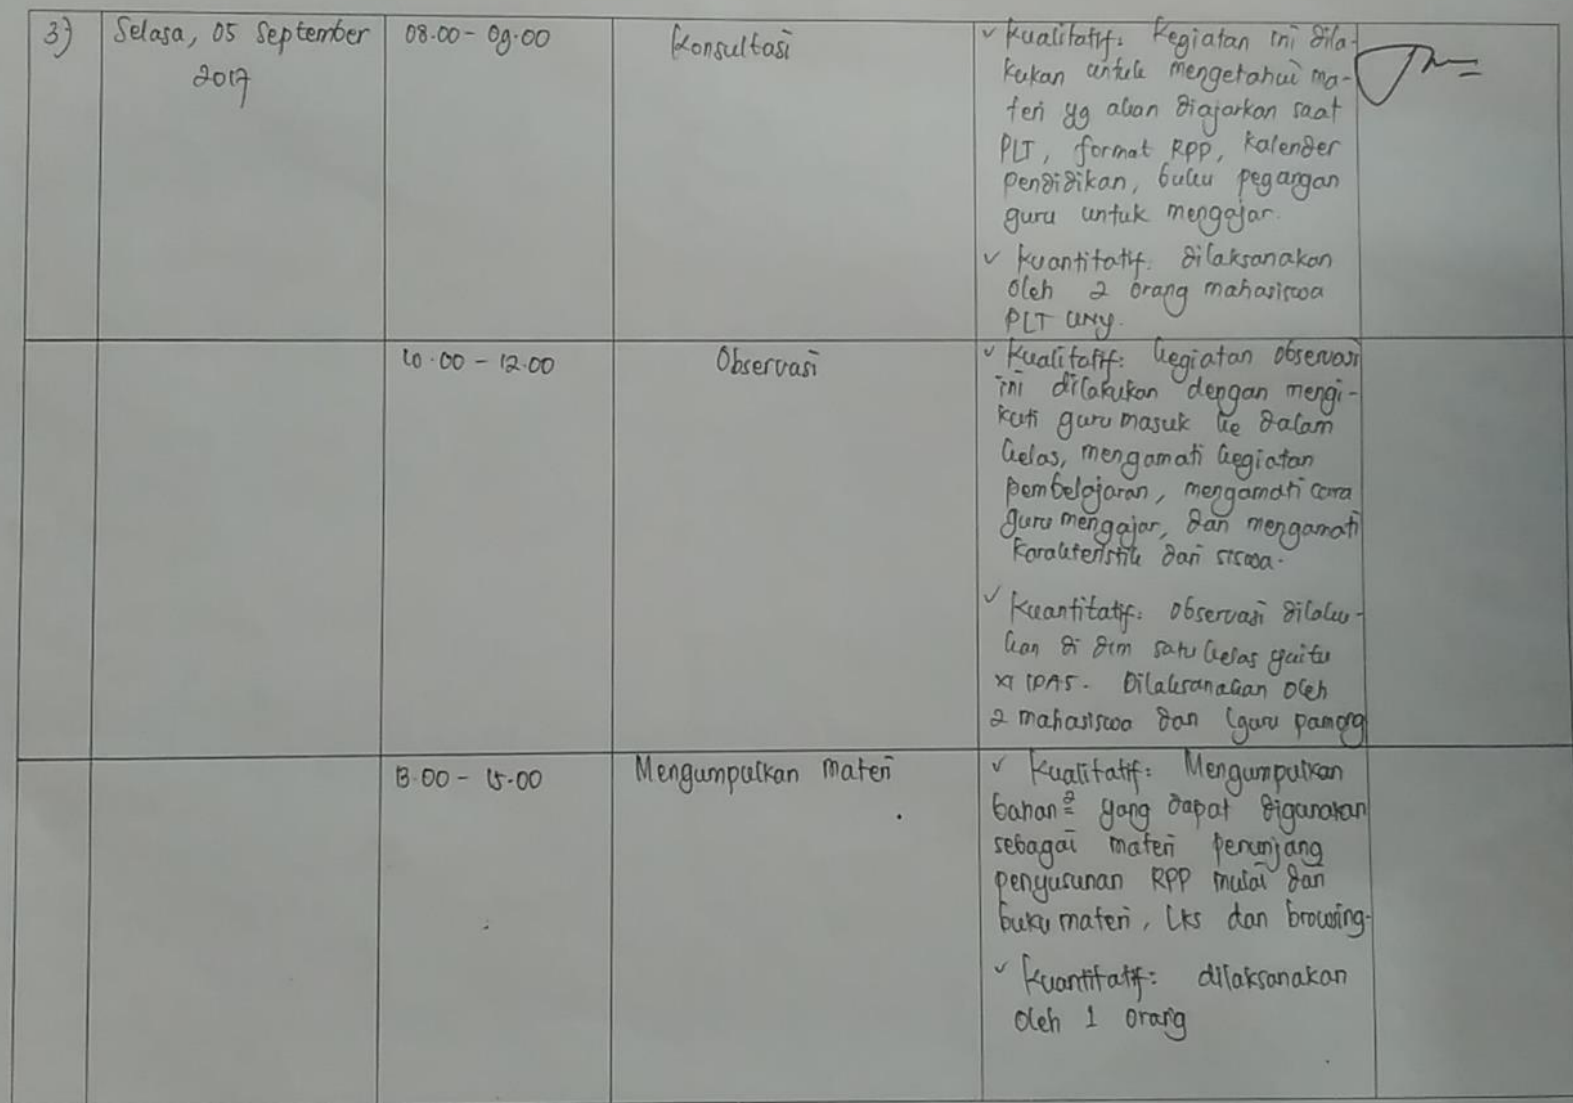 3) Selasa, 05 September 08.00 - 09.00 Konsultasi
2017
✓ Kualitatif: Kegiatan ini dila-
kukan untuk mengetahui ma-
teri yg akan diajarkan saat
PLT, format RPP, Kalender
Pendidikan, buku pegangan
guru untuk mengajar.
✓ Kuantitatif: dilaksanakan
Oleh 2 orang mahasiswa
PLT UNY.
10.00 - 12.00 Observasi
✓ Kualitatif: kegiatan observasi
ini dilakukan dengan mengi-
kuti guru masuk ke dalam
kelas, mengamati kegiatan
pembelajaran, mengamati cara
guru mengajar, dan mengamati
Karakteristik dari siswa.
✓ Kuantitatif: observasi dilaku-
kan di dlm satu kelas yaitu
XI IPA5. Dilaksanakan oleh
2 mahasiswa dan 1 guru pamong
13.00 - 15.00 Mengumpulkan materi
✓ Kualitatif: Mengumpulkan
bahan² yang dapat digunakan
sebagai materi penunjang
penyusunan RPP mulai dari
buku materi, LKS dan browsing.
✓ Kuantitatif: dilaksanakan
Oleh 1 orang